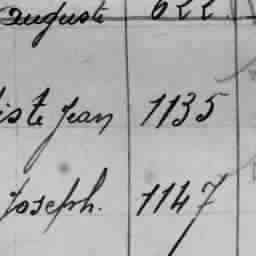 Auguste 622
iste Jean 1135
Joseph. 1147